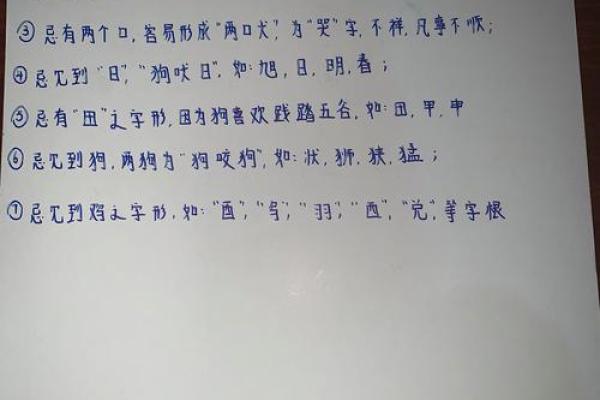 ③忌有两个口,容易形成“两口犬”,为“哭”字,不祥,凡事不顺;
④忌见到“日”,“狗吠日”,如:旭,日,明,春;
⑤忌有“田”之字形,因为狗喜欢践踏五谷,如:田,甲,申
⑥忌见到狗,两狗为“狗咬狗”,如:状,狮,狭,猛;
⑦忌见到鸡之字形,如:“酉”,“鸟”,“羽”,“西”,“兑”,等字根